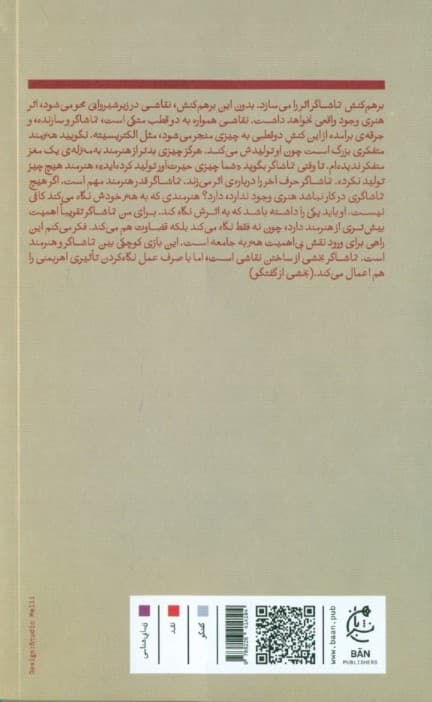 برهم‌کنش تماشاگر اثر را می‌سازد. بدون این برهم‌کنش، نقاشی در زیرشیروانی محو می‌شود؛ اثر
هنری وجود واقعی نخواهد داشت. نقاشی همواره به دو قطب متکی است، تماشاگر و سازنده، و
جرقه‌ی برآمده از این کنش دوقطبی به چیزی منجر می‌شود، مثل الکتریسیته. نگویید هنرمند
متفکری بزرگ است چون او تولیدش می‌کند. هرگز چیزی بدتر از هنرمند به‌منزله‌ی یک مغز
متفکر ندیده‌ام. تا وقتی تماشاگر بگوید «شما چیزی حیرت‌آور تولید کرده‌اید»، هنرمند هیچ چیز
تولید نکرده. تماشاگر حرف آخر را درباره‌ی اثر می‌زند. تماشاگر قدر هنرمند مهم است. اگر هیچ
تماشاگری در کار نباشد هنری وجود ندارد، دارد؟ هنرمندی که به هنر خودش نگاه می‌کند کافی
نیست. او باید یکی را داشته باشد که به اثرش نگاه کند. برای من تماشاگر تقریباً اهمیت
بیش‌تری از هنرمند دارد، چون نه فقط نگاه می‌کند بلکه قضاوت هم می‌کند. فکر می‌کنم این
راهی برای ورود نقش بی‌اهمیت هنر به جامعه است. این بازی کوچکی بین تماشاگر و هنرمند
است. تماشاگر بخشی از ساختن نقاشی است، اما با صرف عمل نگاه‌کردن تأثیری اهریمنی را
هم اعمال می‌کند. (بخشی از گفتگو)
Design:Studio Melli
زیبایی‌شناسی
نقد
گفتگو
www.baan.pub
بان
BĀN
PUBLISHERS